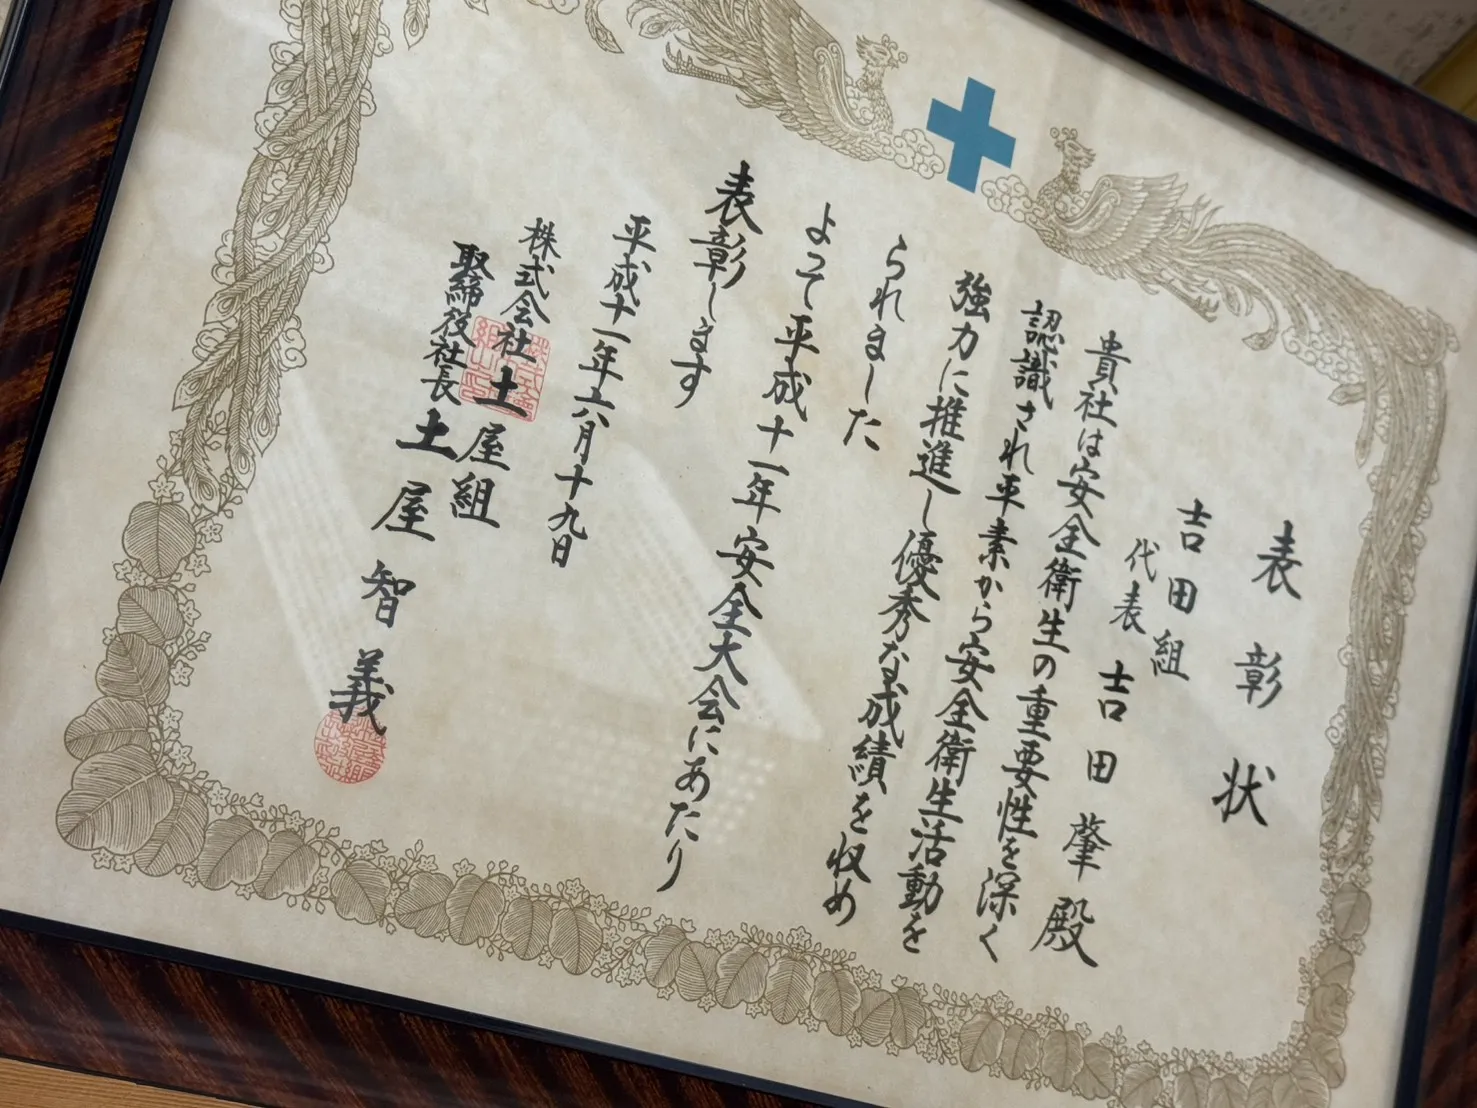 表彰状
吉田組
代表 吉田肇殿
貴社は安全衛生の重要性を深く
認識され平素から安全衛生活動を
強力に推進し優秀な成績を収め
られました
よって平成十一年安全大会にあたり
表彰します
平成十一年六月十九日
株式会社土屋組
取締役社長 土屋智義